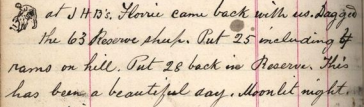 at J H B's. Florie came back with us. Dagged
the 63 Reserve sheep. Put 25 including 4
rams on hill. Put 28 back in Reserve. This
has been a beautiful day. Moonlit night.